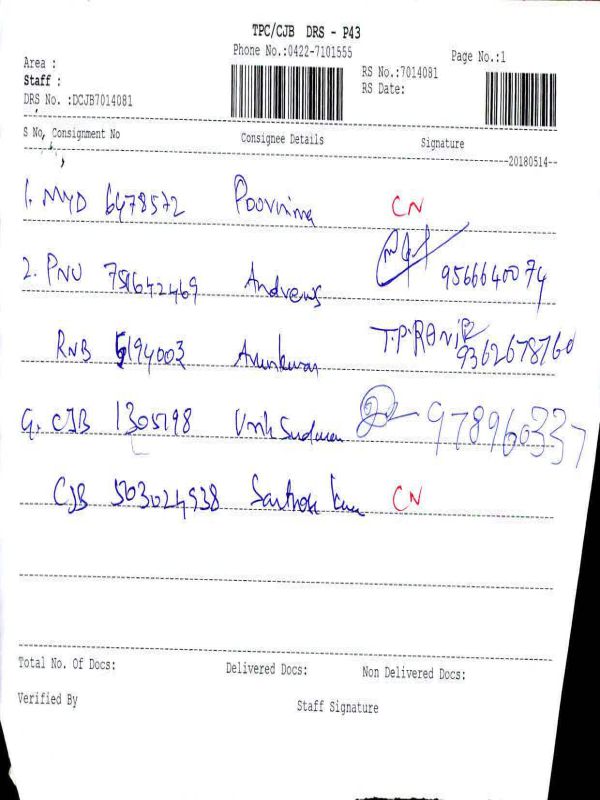 TPC/CJB DRS - P43
Phone No.:0422-7101555
Page No.:1
Area :
Staff :
DRS No. :DCJB7014081
RS No.:7014081
RS Date:
S No, Consignment No Consignee Details Signature
--20180514--
1. MYD 6478572 Poornima CN
2. PNU 751642469 Andrews 9566640074
RNB 5194003 Arunkumar T.P.RONI 9362678760
CJB 1305198
CJB 503024538 CN
Total No. Of Docs: Delivered Docs: Non Delivered Docs:
Verified By Staff Signature